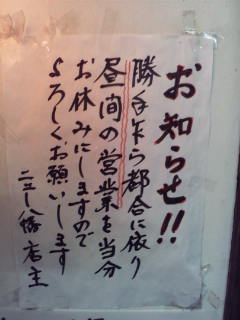 お知らせ!!
勝手乍ら都合に依り
昼間の営業を当分
お休みにしますので
よろしくお願いします
ニュー八幡店主